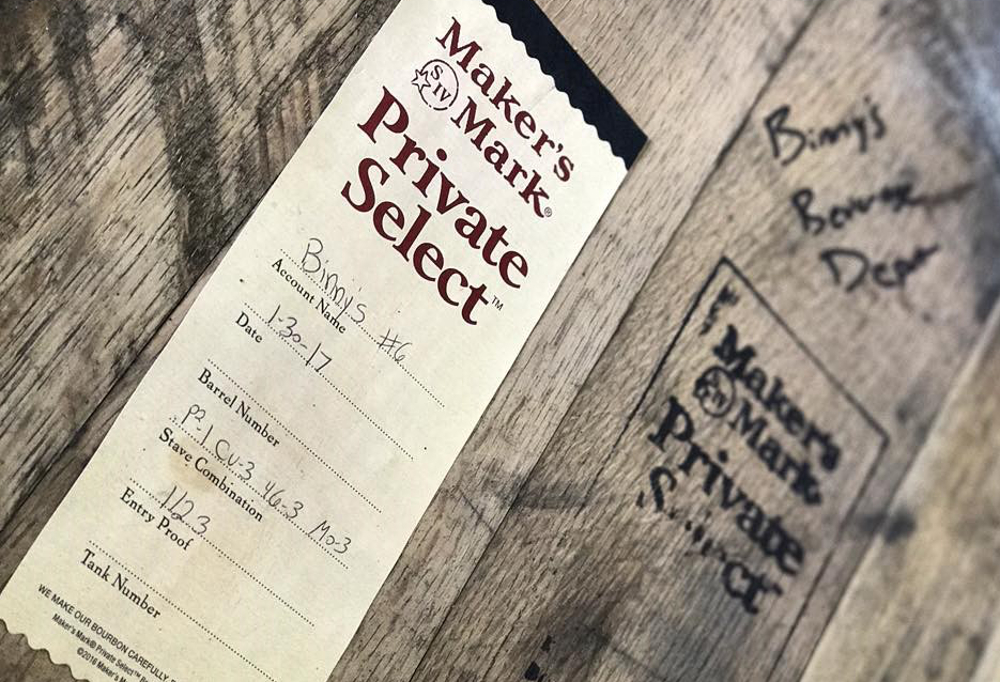 Maker's
S IV Mark®
Private
Select™
Binny's #6
Account Name
1-30-17
Date
Barrel Number
P2-1 Cu-3 46-3 Mo-3
Stave Combination
112.3
Entry Proof
Tank Number
WE MAKE OUR BOURBON CAREFULLY
Maker's Mark® Private Select™
©2016 Maker's
Binny's
Beverage
Depot
Maker's
Mark
Private
Select